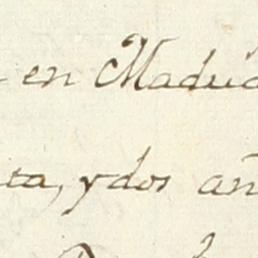 en Madrid
ta, y dos añ